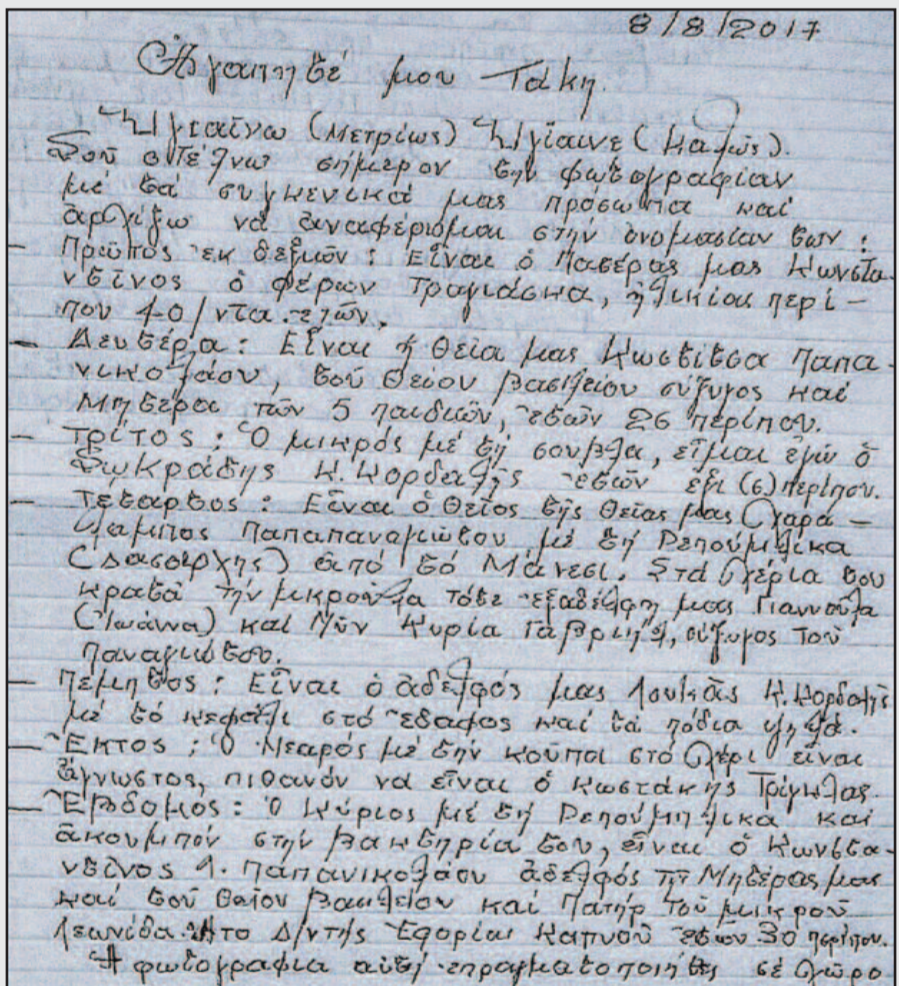 8/8/2017
Ἀγαπητέ μου Τάκη.
Ὑγιαίνω (Μετρίως) Ὑγίαινε (Καλῶς).
Σοῦ στέλνω σήμερον τὴν φωτογραφίαν
μέ τά συγγενικά μας πρόσωπα καί
ἀρχίζω νά ἀναφέρομαι στήν ὀνομασίαν των:
- Πρῶτος ἐκ δεξιῶν: Εἶναι ὁ Πατέρας μας Κωνστα-
ντῖνος ὁ φέρων Τραγιάσκα, ἡλικίας περί-
που 40/ντα ἐτῶν.
- Δευτέρα: Εἶναι ἡ Θεία μας Κωστίτσα Παπα-
νικολάου, τοῦ Θείου Βασιλείου σύζυγος καί
Μητέρα τῶν 5 παιδιῶν, ἐτῶν 26 περίπου.
- Τρίτος: Ὁ μικρός μέ τή σούβλα, εἶμαι ἐγώ ὁ
Σωκράτης Κ. Κορδαλῆς ἐτῶν ἕξι (6) περίπου.
- Τέταρτος: Εἶναι ὁ Θεῖος τῆς Θείας μας Χαρά-
λαμπος Παπαπαναγιώτου μέ τή Ρεπούμπλικα
(Δασάρχης) ἀπό τό Μάνεσι. Στά χέρια του
κρατᾶ τήν μικρούλα τότε ἐξαδέλφη μας Γιαννούλα
(Ἰωάννα) καί Νῦν Κυρία Γαβριήλ, σύζυγος Τοῦ
Παναγιώτου.
- Πέμπτος: Εἶναι ὁ ἀδελφός μας Λουκᾶς Κ. Κορδαλῆς
μέ τό κεφάλι στό ἔδαφος καί τά πόδια ψηλά.
- Ἕκτος: Ὁ Νεαρός μέ τήν κούπα στό χέρι εἶναι
ἄγνωστος, πιθανόν νά εἶναι ὁ Κωστάκης Τρίγκλας.
- Ἕβδομος: Ὁ Κύριος μέ τή Ρεπούμπλικα καί
ἀκουμπόν στήν βακτηρία του, εἶναι ὁ Κωνστα-
ντῖνος Λ. Παπανικολάου ἀδελφός τῆς Μητέρας μας
καί τοῦ Θείου Βασιλείου καί Πατήρ Τοῦ μικροῦ
Λεωνίδα. Ἦτο Δ/ντής Ἐφορίας Καπνοῦ ἐτῶν 30 περίπου.
Ἡ φωτογραφία αὐτή ἐπραγματοποιήθη σέ χῶρο